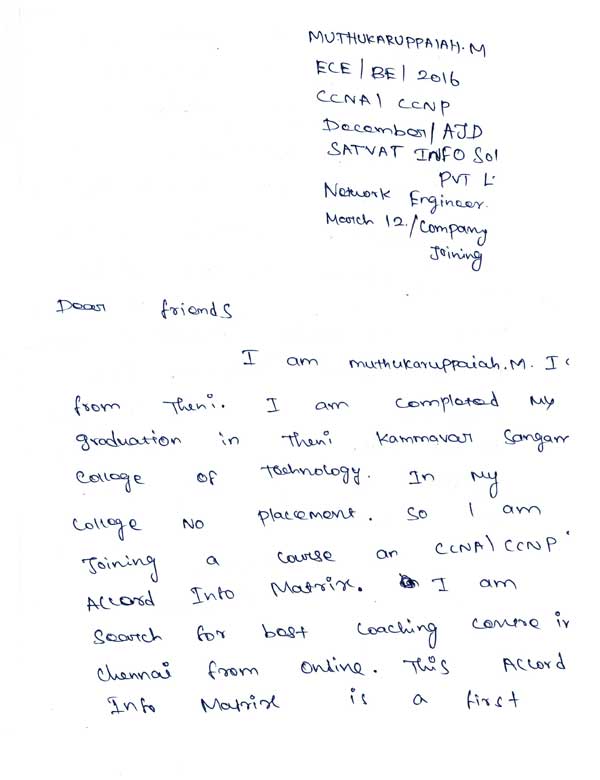 MUTHUKARUPPAIAH.M
ECE | BE | 2016
CCNA | CCNP
December | AJD
SATVAT INFO Sol
PVT L
Network Engineer.
March 12. / Company
Joining
Dear friends
I am muthukaruppaiah.M. I
from Theni. I am completed My
graduation in Theni Kammavar Sangam
College of Technology. In My
College No placement. So I am
Joining a course an CCNA | CCNP
Accord Into Matrix. I am
Search for best coaching centre in
chennai from online. This Accord
Info Matrix is a first